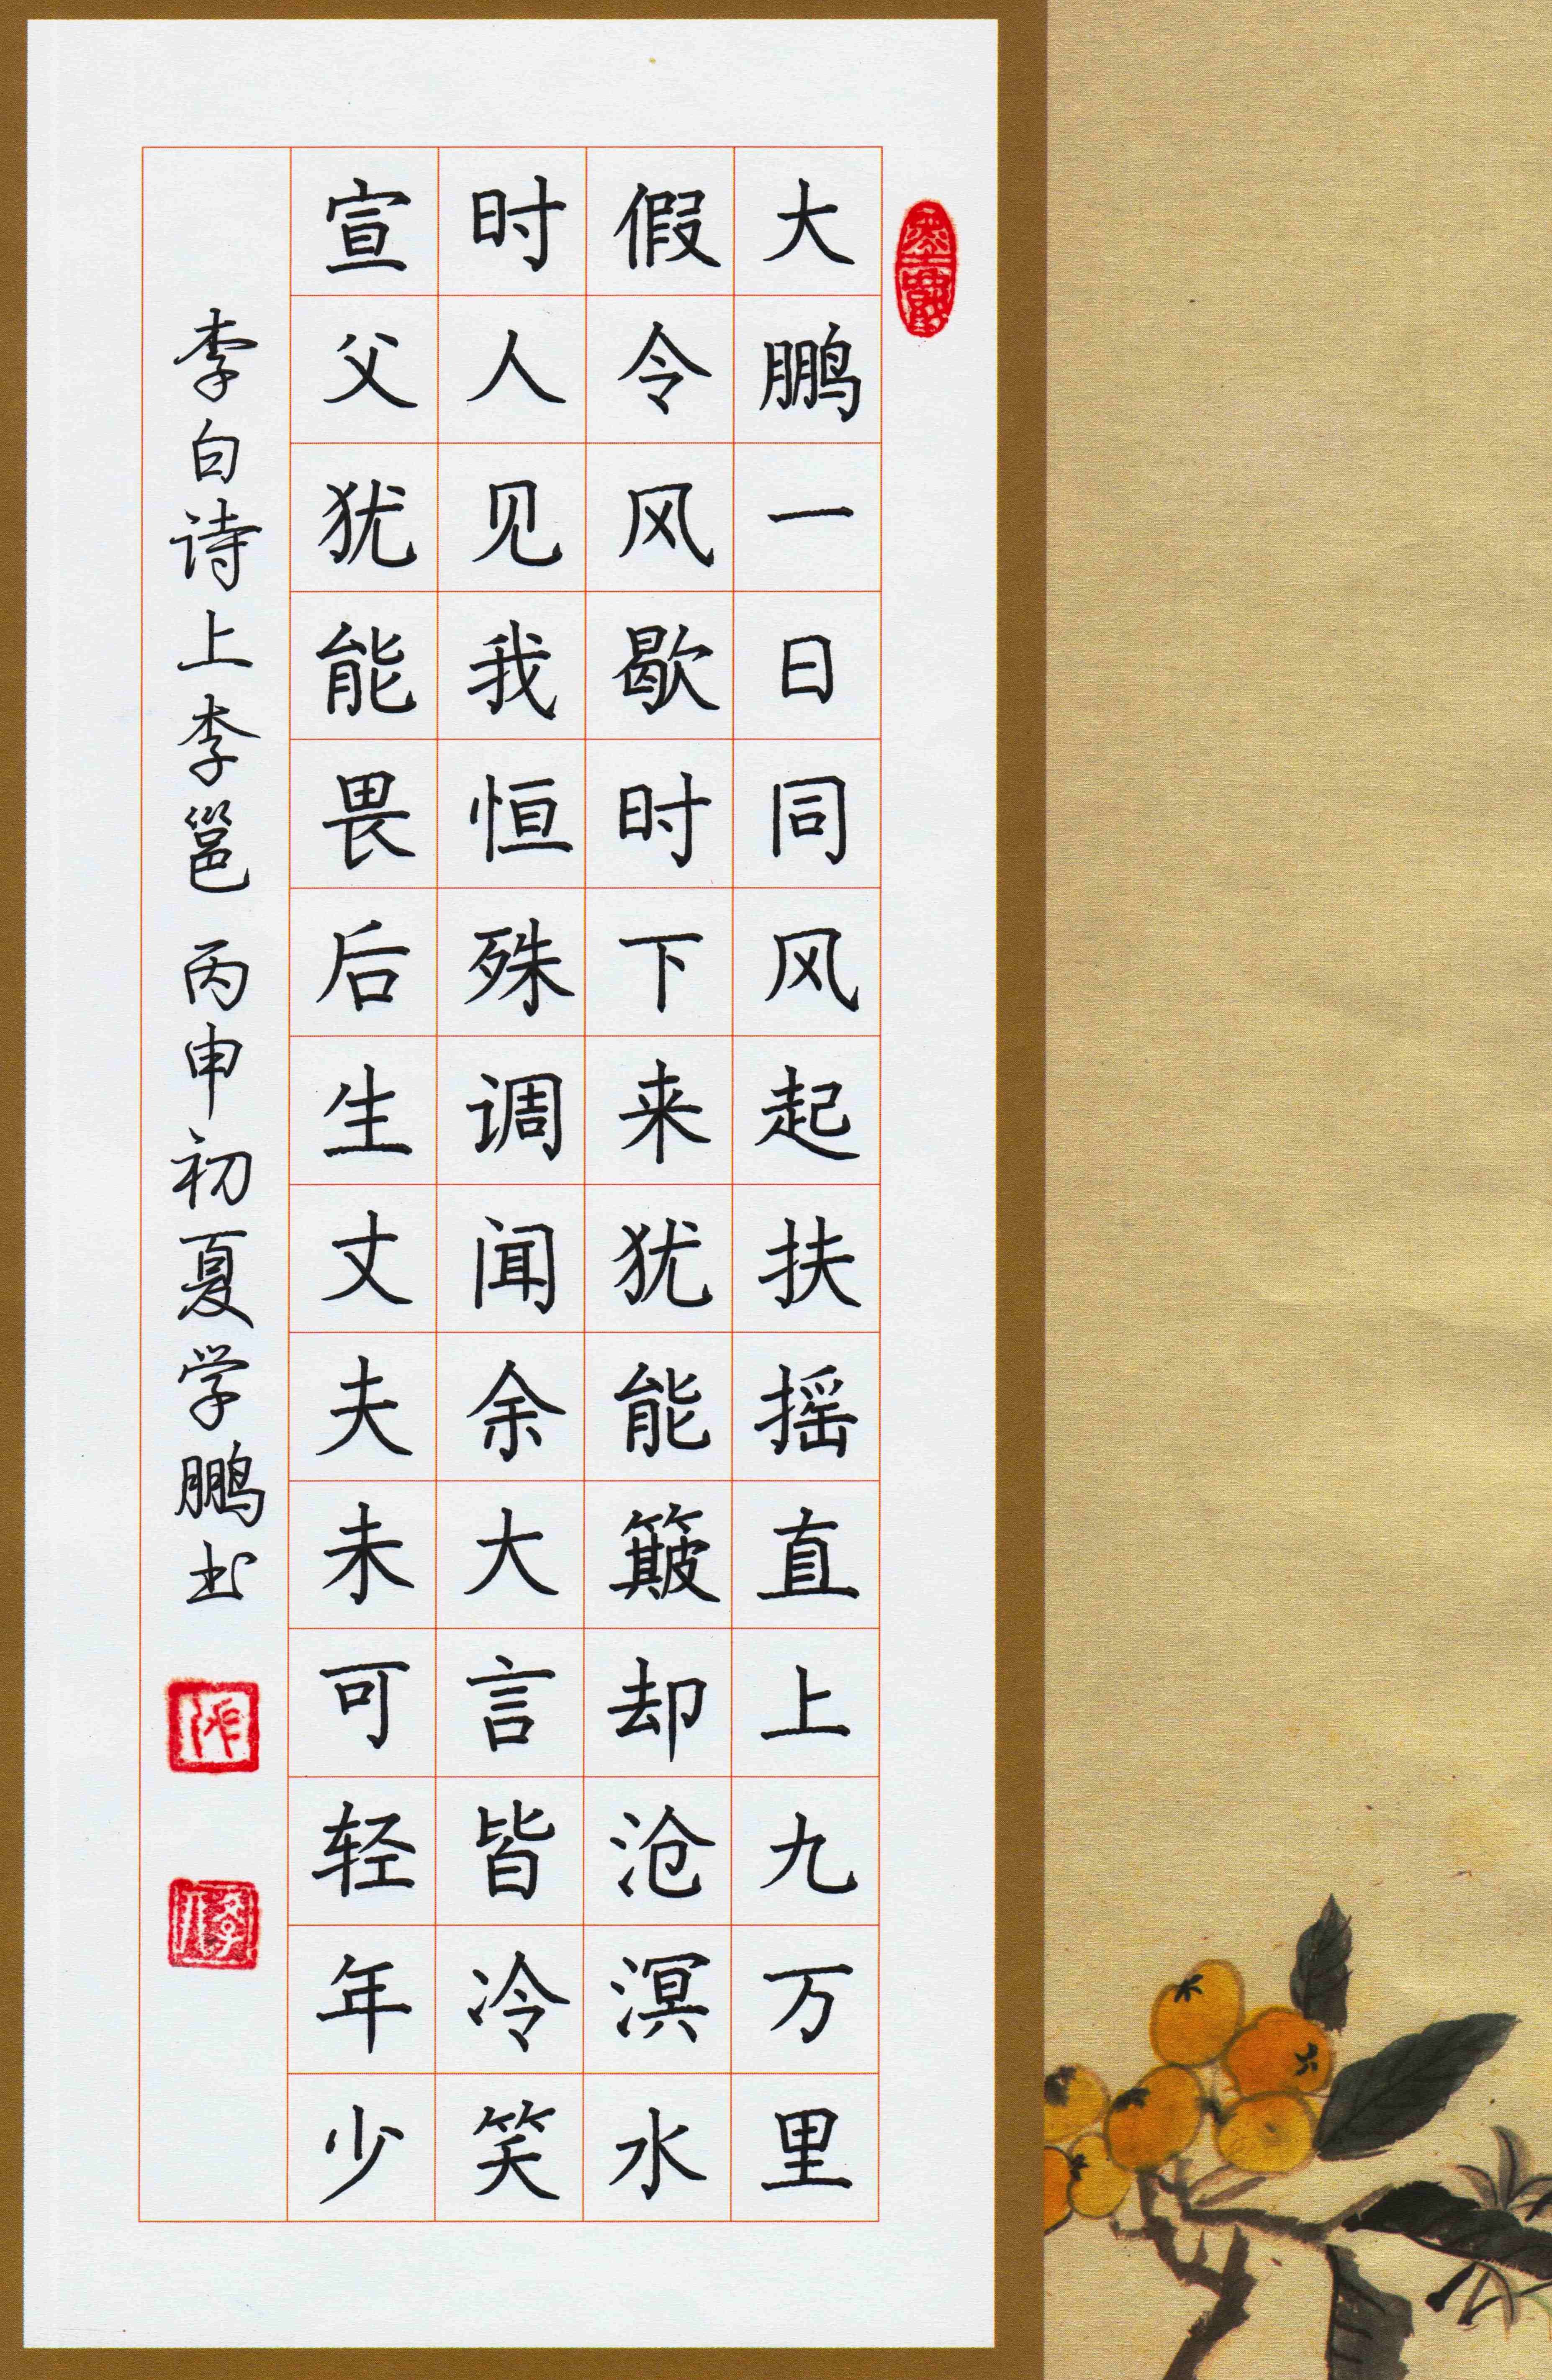 大鹏一日同风起扶摇直上九万里
假令风歇时下来犹能簸却沧溟水
时人见我恒殊调闻余大言皆冷笑
宣父犹能畏后生丈夫未可轻年少
李白诗上李邕 丙申初夏学鹏书